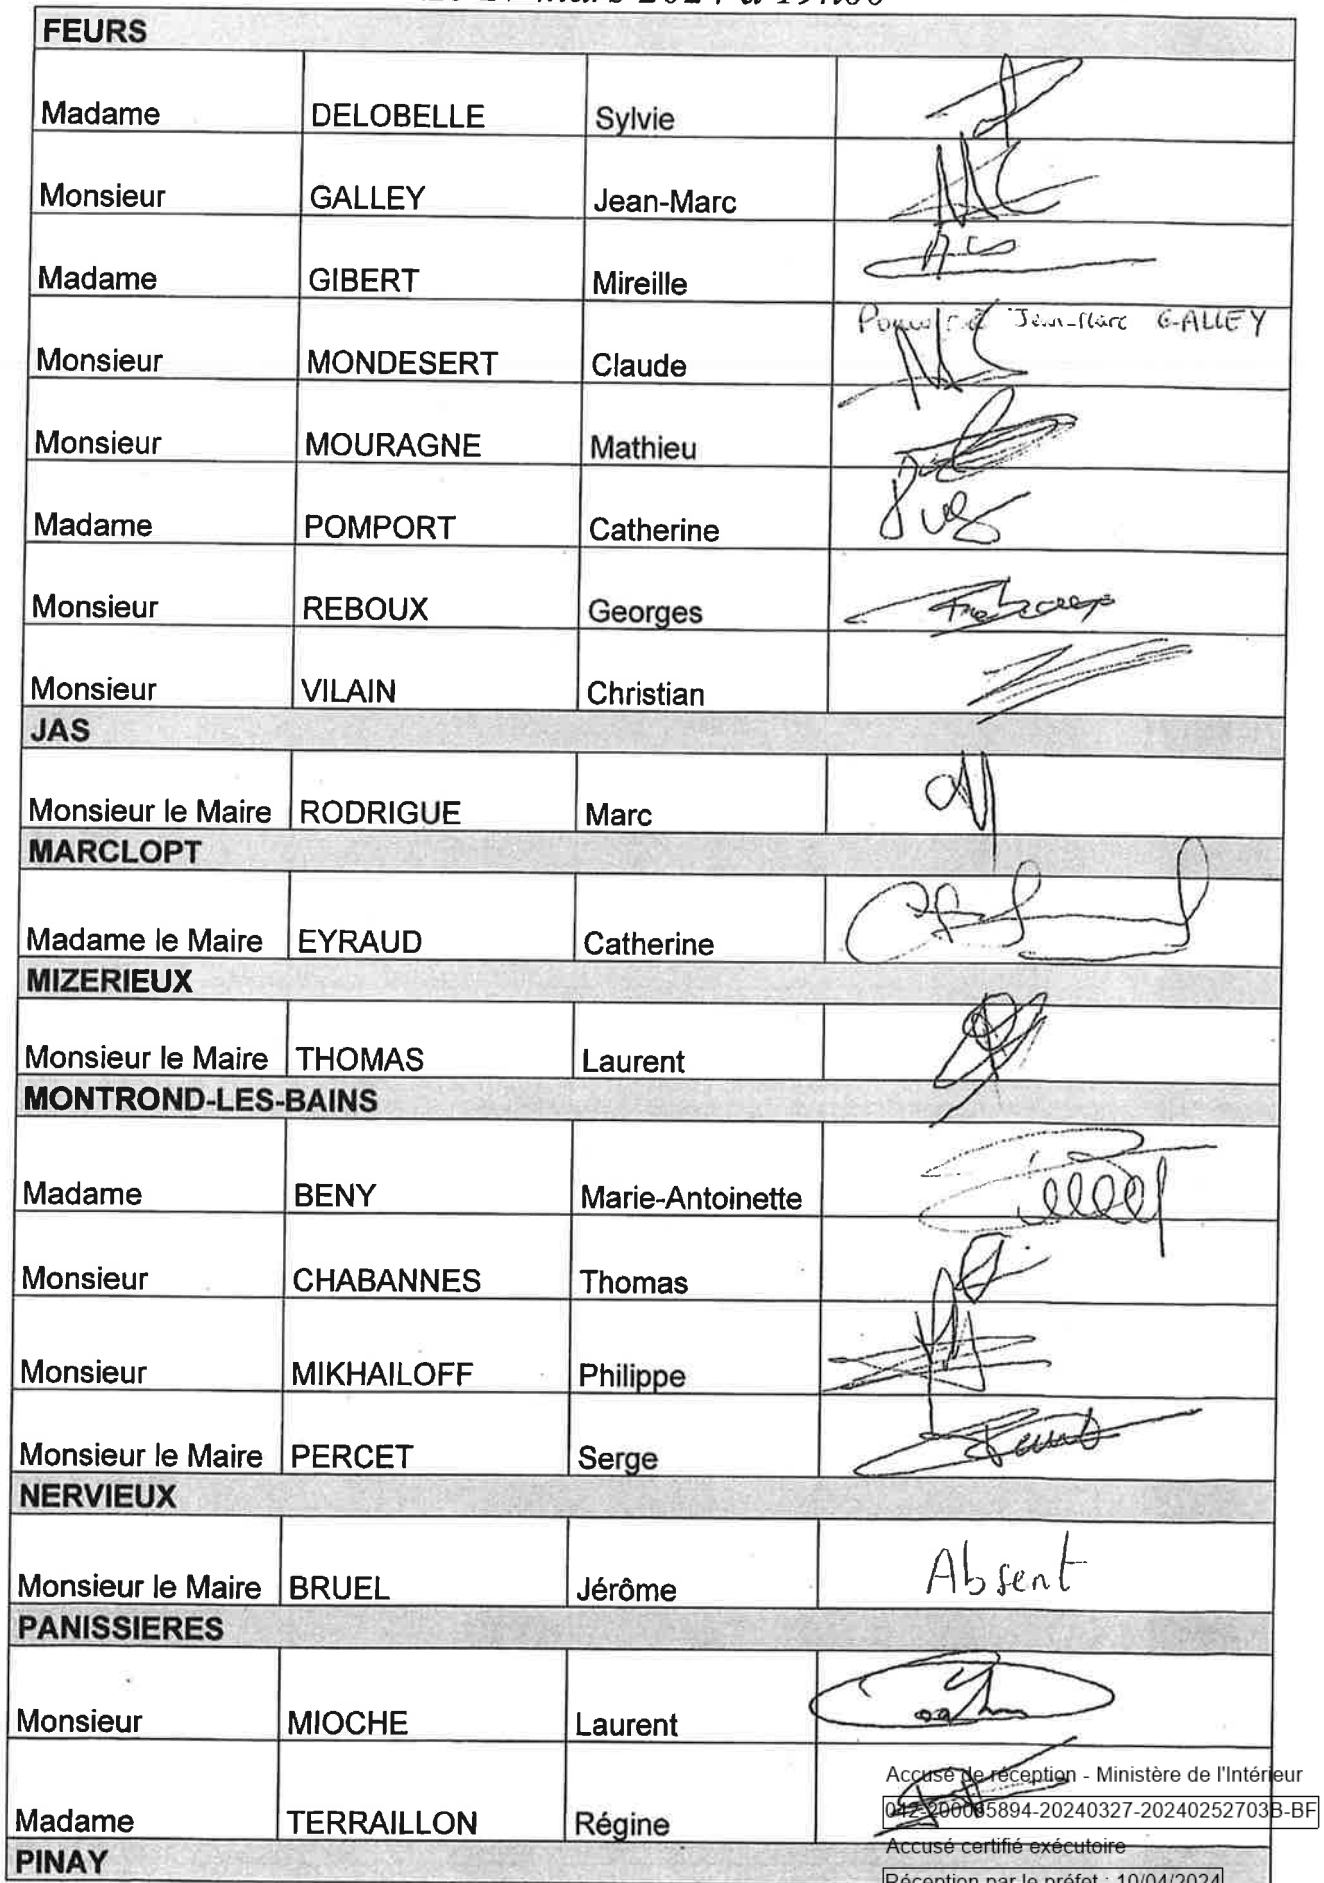 mars 2024 à 19h00
FEURS
Madame DELOBELLE Sylvie
Monsieur GALLEY Jean-Marc
Madame GIBERT Mireille
Jean-Marc GALLEY
Monsieur MONDESERT Claude
Monsieur MOURAGNE Mathieu
Madame POMPORT Catherine
Monsieur REBOUX Georges
Monsieur VILAIN Christian
JAS
Monsieur le Maire RODRIGUE Marc
MARCLOPT
Madame le Maire EYRAUD Catherine
MIZERIEUX
Monsieur le Maire THOMAS Laurent
MONTROND-LES-BAINS
Madame BENY Marie-Antoinette
Monsieur CHABANNES Thomas
Monsieur MIKHAILOFF Philippe
Monsieur le Maire PERCET Serge
NERVIEUX
Monsieur le Maire BRUEL Jérôme Absent
PANISSIERES
Monsieur MIOCHE Laurent
Accusé de réception - Ministère de l'Intérieur
042-200065894-20240327-20240252703B-BF
Madame TERRAILLON Régine
Accusé certifié exécutoire
PINAY
Réception par le préfet : 10/04/2024